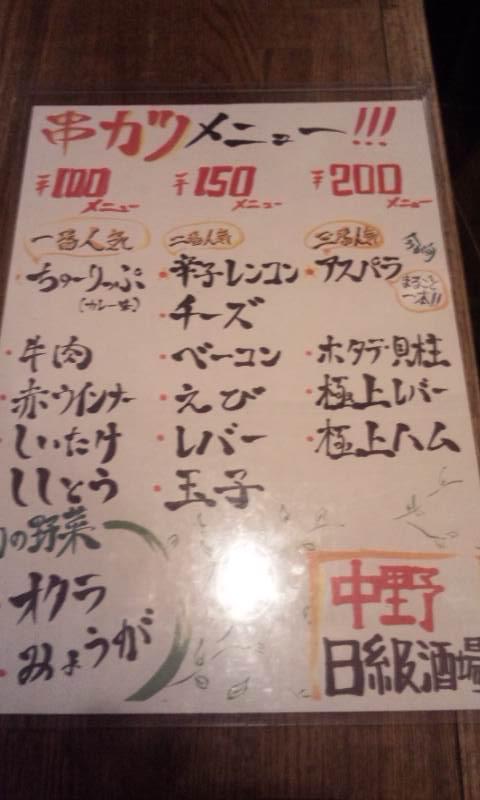 串カツメニュー!!!
¥100 メニュー
一番人気
ちゅーりっぷ
(カレー味)
牛肉
赤ウインナー
しいたけ
ししとう
の野菜
オクラ
みょうが
¥150 メニュー
二番人気
辛子レンコン
チーズ
ベーコン
えび
レバー
玉子
¥200 メニュー
三番人気
アスパラ
まるごと一本!!
ホタテ貝柱
極上レバー
極上ハム
中野
日級酒場